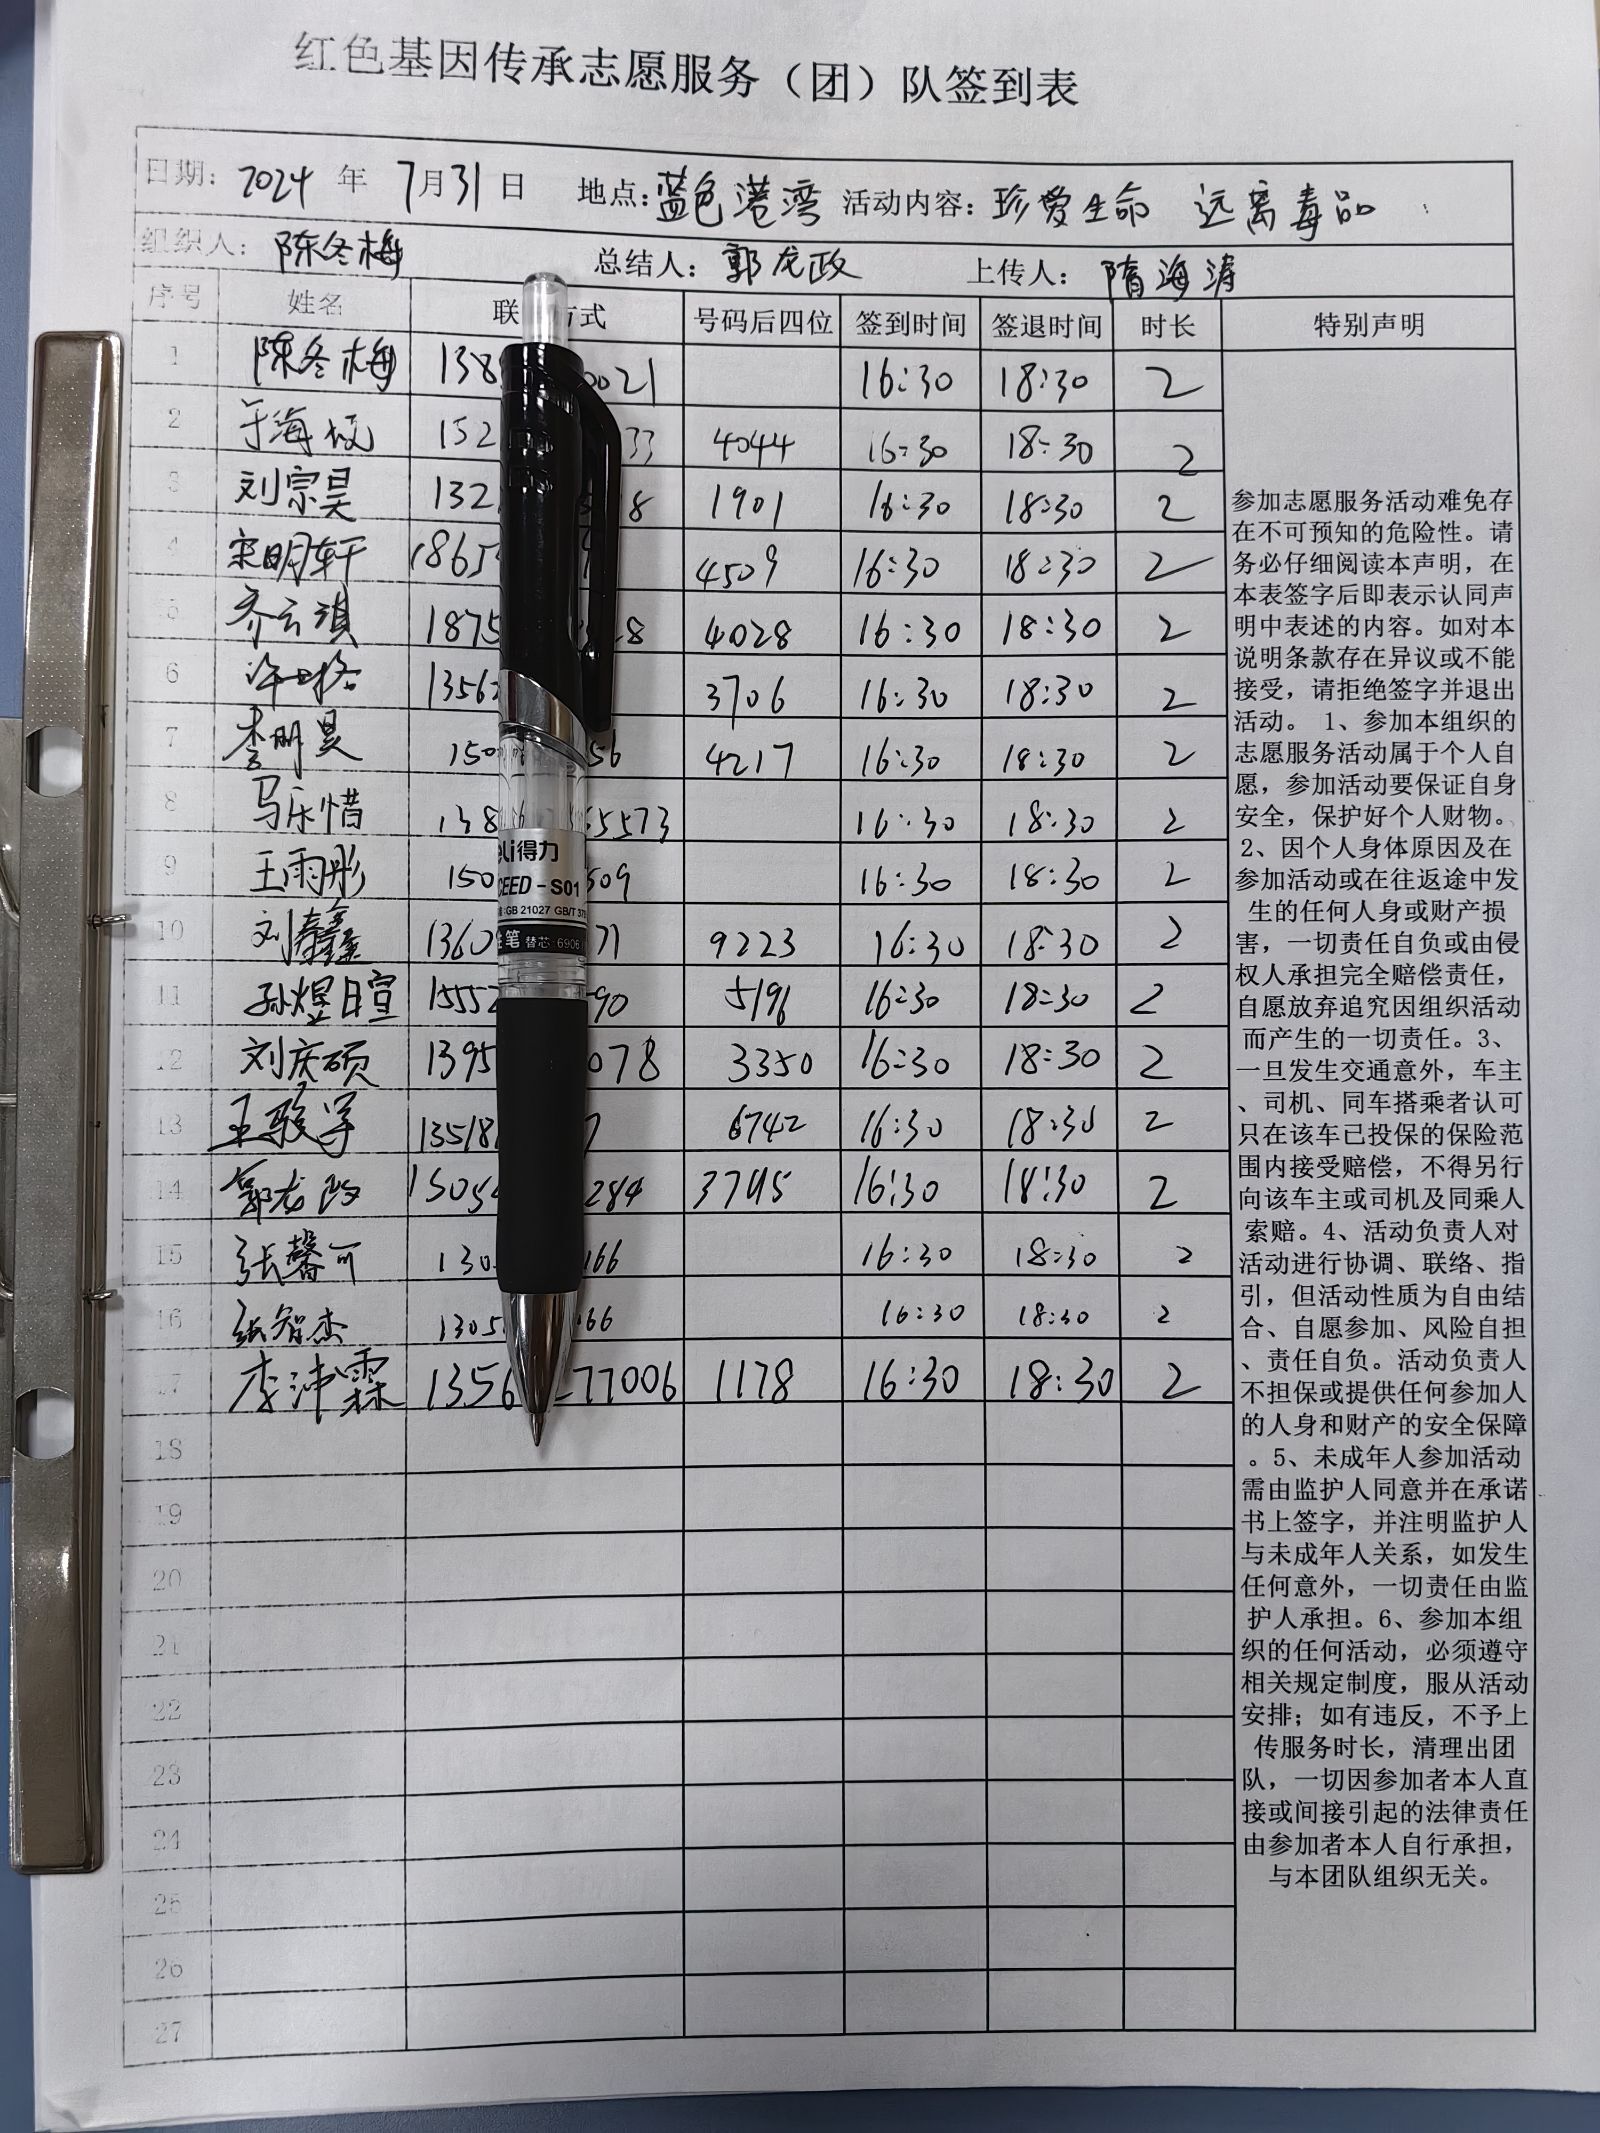 红色基因传承志愿服务（团）队签到表
日期： 2024 年 7月31日 地点：蓝色港湾 活动内容：珍爱生命 远离毒品
组织人：陈冬梅 总结人：郭龙政 上传人：隋海涛
序号 姓名 联 方式 号码后四位 签到时间 签退时间 时长 特别声明
1 陈冬梅 138 0021 16:30 18:30 2
2 于海 152 33 4044 16:30 18:30 2
3 刘宗昊 132 8 1901 16:30 18:30 2
4 宋明轩 1865 4509 16:30 18:30 2
5 齐云淇 1875 28 4028 16:30 18:30 2
6 许 1356 3706 16:30 18:30 2
7 李明昊 150 56 4217 16:30 18:30 2
8 马乐惜 138 5573 16:30 18:30 2
9 王雨彤 150 509 16:30 18:30 2
10 刘鑫 1360 71 9223 16:30 18:30 2
11 孙煜暄 1555 90 5196 16:30 18:30 2
12 刘庆硕 1395 078 3350 16:30 18:30 2
13 王骏 13518 7 6742 16:30 18:30 2
14 郭龙政 1505 284 3745 16:30 18:30 2
15 张馨可 130 166 16:30 18:30 2
16 张智杰 1305 66 16:30 18:30 2
17 李沛霖 1356 77006 1178 16:30 18:30 2
18
19
20
21
22
23
24
25
26
27
参加志愿服务活动难免存
在不可预知的危险性。请
务必仔细阅读本声明，在
本表签字后即表示认同声
明中表述的内容。如对本
说明条款存在异议或不能
接受，请拒绝签字并退出
活动。 1、参加本组织的
志愿服务活动属于个人自
愿，参加活动要保证自身
安全，保护好个人财物。
2、因个人身体原因及在
参加活动或在往返途中发
生的任何人身或财产损
害，一切责任自负或由侵
权人承担完全赔偿责任，
自愿放弃追究因组织活动
而产生的一切责任。3、
一旦发生交通意外，车主
、司机、同车搭乘者认可
只在该车已投保的保险范
围内接受赔偿，不得另行
向该车主或司机及同乘人
索赔。4、活动负责人对
活动进行协调、联络、指
引，但活动性质为自由结
合、自愿参加、风险自担
、责任自负。活动负责人
不担保或提供任何参加人
的人身和财产的安全保障
。5、未成年人参加活动
需由监护人同意并在承诺
书上签字，并注明监护人
与未成年人关系，如发生
任何意外，一切责任由监
护人承担。6、参加本组
织的任何活动，必须遵守
相关规定制度，服从活动
安排；如有违反，不予上
传服务时长，清理出团
队，一切因参加者本人直
接或间接引起的法律责任
由参加者本人自行承担，
与本团队组织无关。
eli得力
CEED-S01
GB 21027 GB/T 37
笔 替芯:6906